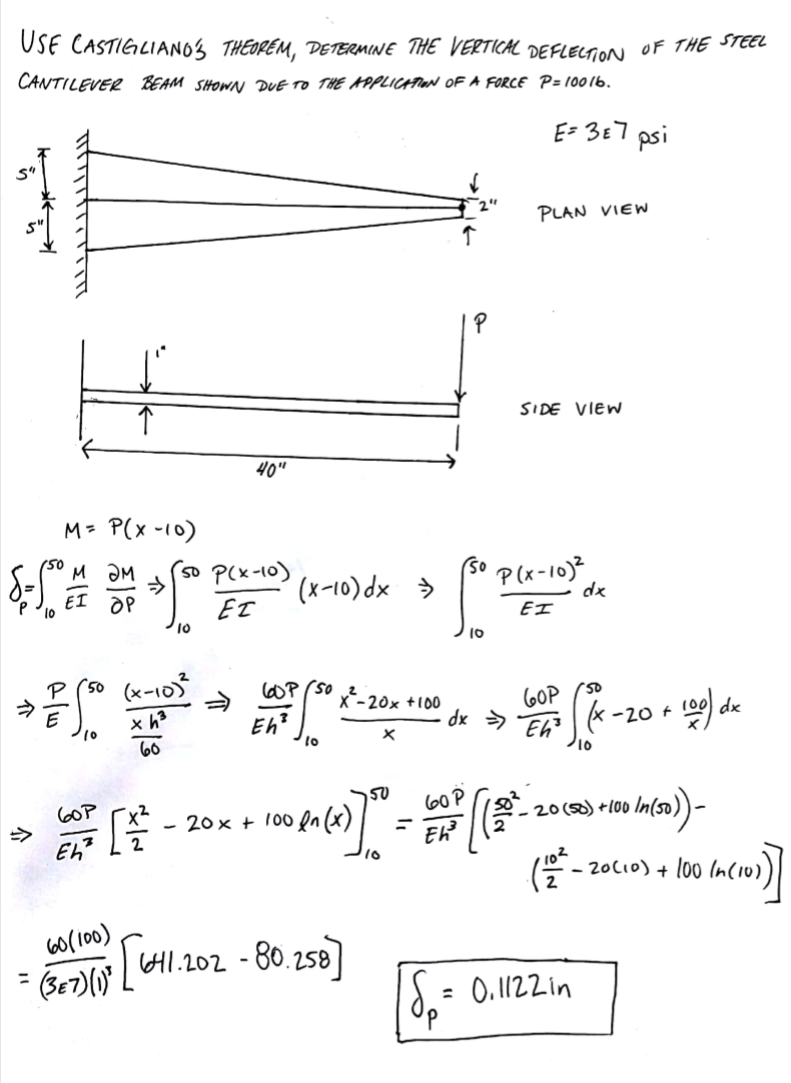 USE CASTIGLIANO'S THEOREM, DETERMINE THE VERTICAL DEFLECTION OF THE STEEL
CANTILEVER BEAM SHOWN DUE TO THE APPLICATION OF A FORCE P=100 lb.
E= 3E7 psi
5"
5"
2"
PLAN VIEW
P
1"
SIDE VIEW
40"
M= P(x-10)
δ_P = ∫_10^50 M/EI ∂M/∂P ⇒ ∫_10^50 P(x-10)/EI (x-10) dx ⇒ ∫_10^50 P(x-10)^2/EI dx
⇒ P/E ∫_10^50 (x-10)^2/(xh^3/60) ⇒ 60P/Eh^3 ∫_10^50 (x^2-20x+100)/x dx ⇒ 60P/Eh^3 ∫_10^50 (x-20+100/x) dx
⇒ 60P/Eh^3 [x^2/2 - 20x + 100 ln(x)]_10^50 = 60P/Eh^3 [(50^2/2 - 20(50) + 100 ln(50)) -
(10^2/2 - 20(10) + 100 ln(10))]
= 60(100)/(3E7)(1)^3 [641.202 - 80.258]
δ_P = 0.1122 in